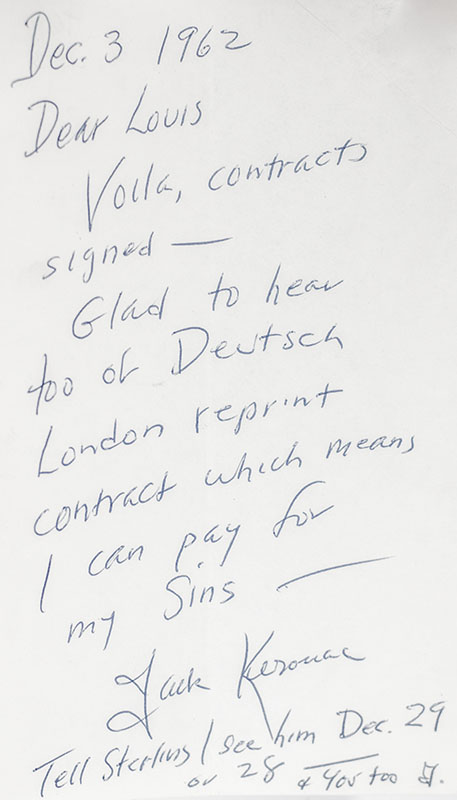 Dec. 3 1962
Dear Louis
Voila, contracts
signed —
Glad to hear
too of Deutsch
London reprint
contract which means
I can pay for
my Sins —
Jack Kerouac
Tell Sterling I see him Dec. 29
or 28 & you too J.